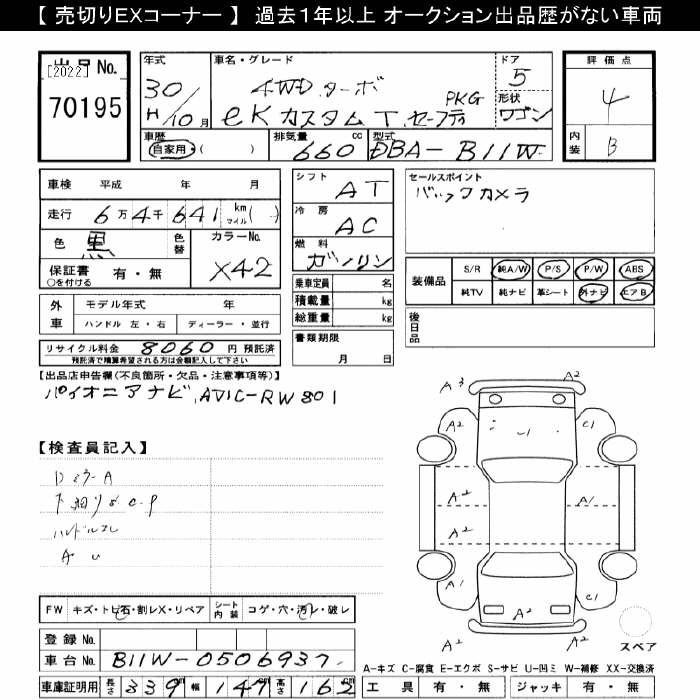 【 売切りEXコーナー 】 過去1年以上 オークション出品歴がない車両
出品No.
[2022]
70195
年式
30/
H/10月
車名・グレード
4WD ターボ
eKカスタム T セーフティ PKG
ドア
5
形状
ワゴン
評価点
4
内装
B
車歴
自家用・( )
排気量
660 cc
型式
DBA-B11W
車検 平成 年 月
走行 6万4千641 km マイル ( )
色 黒 色替
カラーNo.
X42
保証書 有・無
○を付ける
外車
モデル年式 年
ハンドル 左・右 ディーラー・並行
リサイクル料金 8060 円 預託済
預託済で精算希望される方は金額記入して下さい
シフト AT
冷房 AC
燃料 ガソリン
乗車定員 名
積載量 kg
総重量 kg
書類期限
月 日
セールスポイント
バックカメラ
装備品
S/R 純A/W P/S P/W ABS
純TV 純ナビ 革シート 外ナビ エアB
後日品
【出品店申告欄(不良箇所・欠品・注意事項等)】
パイオニアナビ AVIC-RW801
【検査員記入】
下廻りS C-P
ハンドルスレ
A U
A3 A2
A2 -1 C1
A2 A1
A2
A1 C1
A2
A2 A2
スペア
FW キズ・トビ石・割レX・リペア シート内装 コゲ・穴・汚レ・破レ
登録No.
車台No. B11W-0506937
車庫証明用 長さ 339 cm 幅 147 cm 高さ 162 cm
A-キズ C-腐食 E-エクボ S-サビ U-凹ミ W-補修 XX-交換済
工具 有・無 ジャッキ 有・無